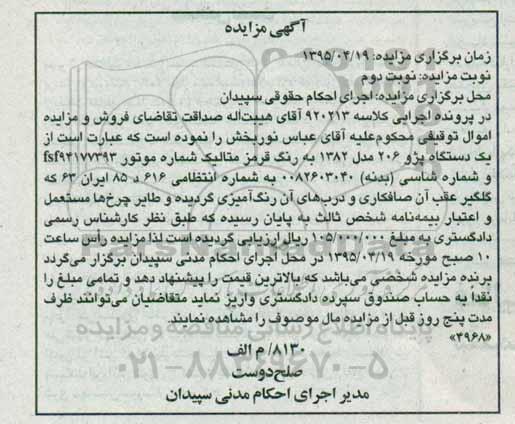 آگهی مزایده
زمان برگزاری مزایده: ۱۳۹۵/۰۴/۱۹
نوبت مزایده: نوبت دوم
محل برگزاری مزایده: اجرای احکام حقوقی سپیدان
در پرونده اجرایی کلاسه ۹۲۰۲۱۳ آقای هیبت‌اله صداقت تقاضای فروش و مزایده
اموال توقیفی محکوم‌علیه آقای عباس نوربخش را نموده است که عبارت است از
یک دستگاه پژو ۲۰۶ مدل ۱۳۸۲ به رنگ قرمز متالیک شماره موتور fsf۹۴۱۷۷۳۹۳
و شماره شاسی (بدنه) ۰۰۸۲۶۰۳۰۴۰ به شماره انتظامی ۶۱۶ د ۸۵ ایران ۶۳ که
گلگیر عقب آن صافکاری و درب‌های آن رنگ‌آمیزی گردیده و طایر چرخ‌ها مستعمل
و اعتبار بیمه‌نامه شخص ثالث به پایان رسیده که طبق نظر کارشناس رسمی
دادگستری به مبلغ ۱۰۵/۰۰۰/۰۰۰ ریال ارزیابی گردیده است لذا مزایده رأس ساعت
۱۰ صبح مورخه ۱۳۹۵/۰۴/۱۹ در محل اجرای احکام مدنی سپیدان برگزار می‌گردد
برنده مزایده شخصی می‌باشد که بالاترین قیمت را پیشنهاد دهد و تمامی مبلغ را
نقداً به حساب صندوق سپرده دادگستری واریز نماید متقاضیان می‌توانند ظرف
مدت پنج روز قبل از مزایده مال موصوف را مشاهده نمایند.
«۴۹۶۸»
پایگاه اطلاع رسانی مناقصه و مزایده
۸۱۳۰/ م الف
۰۲۱-۸۸۳۴۹۶۷۰-۵
صلح‌دوست
مدیر اجرای احکام مدنی سپیدان